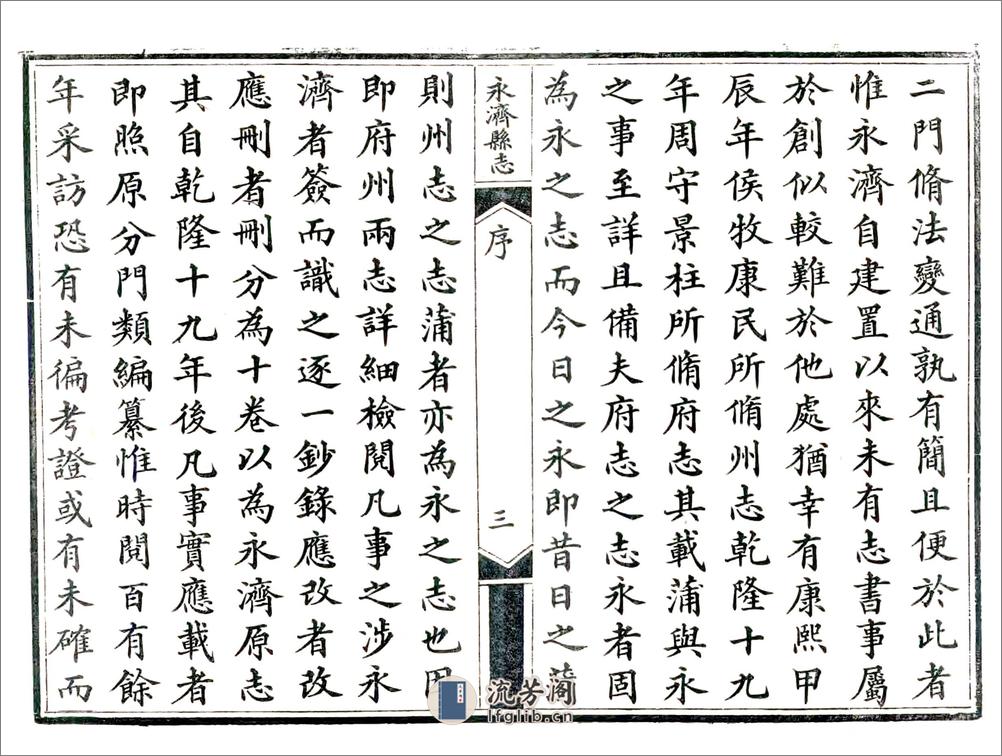 二門脩法變通孰有簡且便於此者
惟永濟自建置以來未有志書事屬
於創似較難於他處猶幸有康熙甲
辰年侯牧康民所脩州志乾隆十九
年周守景柱所脩府志其載蒲與永
之事至詳且備夫府志之志永者固
為永之志而今日之永即昔日之蒲
永濟縣志
序
三
則州志之志蒲者亦為永之志也
即府州兩志詳細檢閱凡事之涉永
濟者簽而識之逐一鈔錄應改者改
應刪者刪分為十卷以為永濟原志
其自乾隆十九年後凡事實應載者
即照原分門類編纂惟時閱百有餘
年采訪恐有未徧考證或有未確而
流芳阁
lfglib.cn